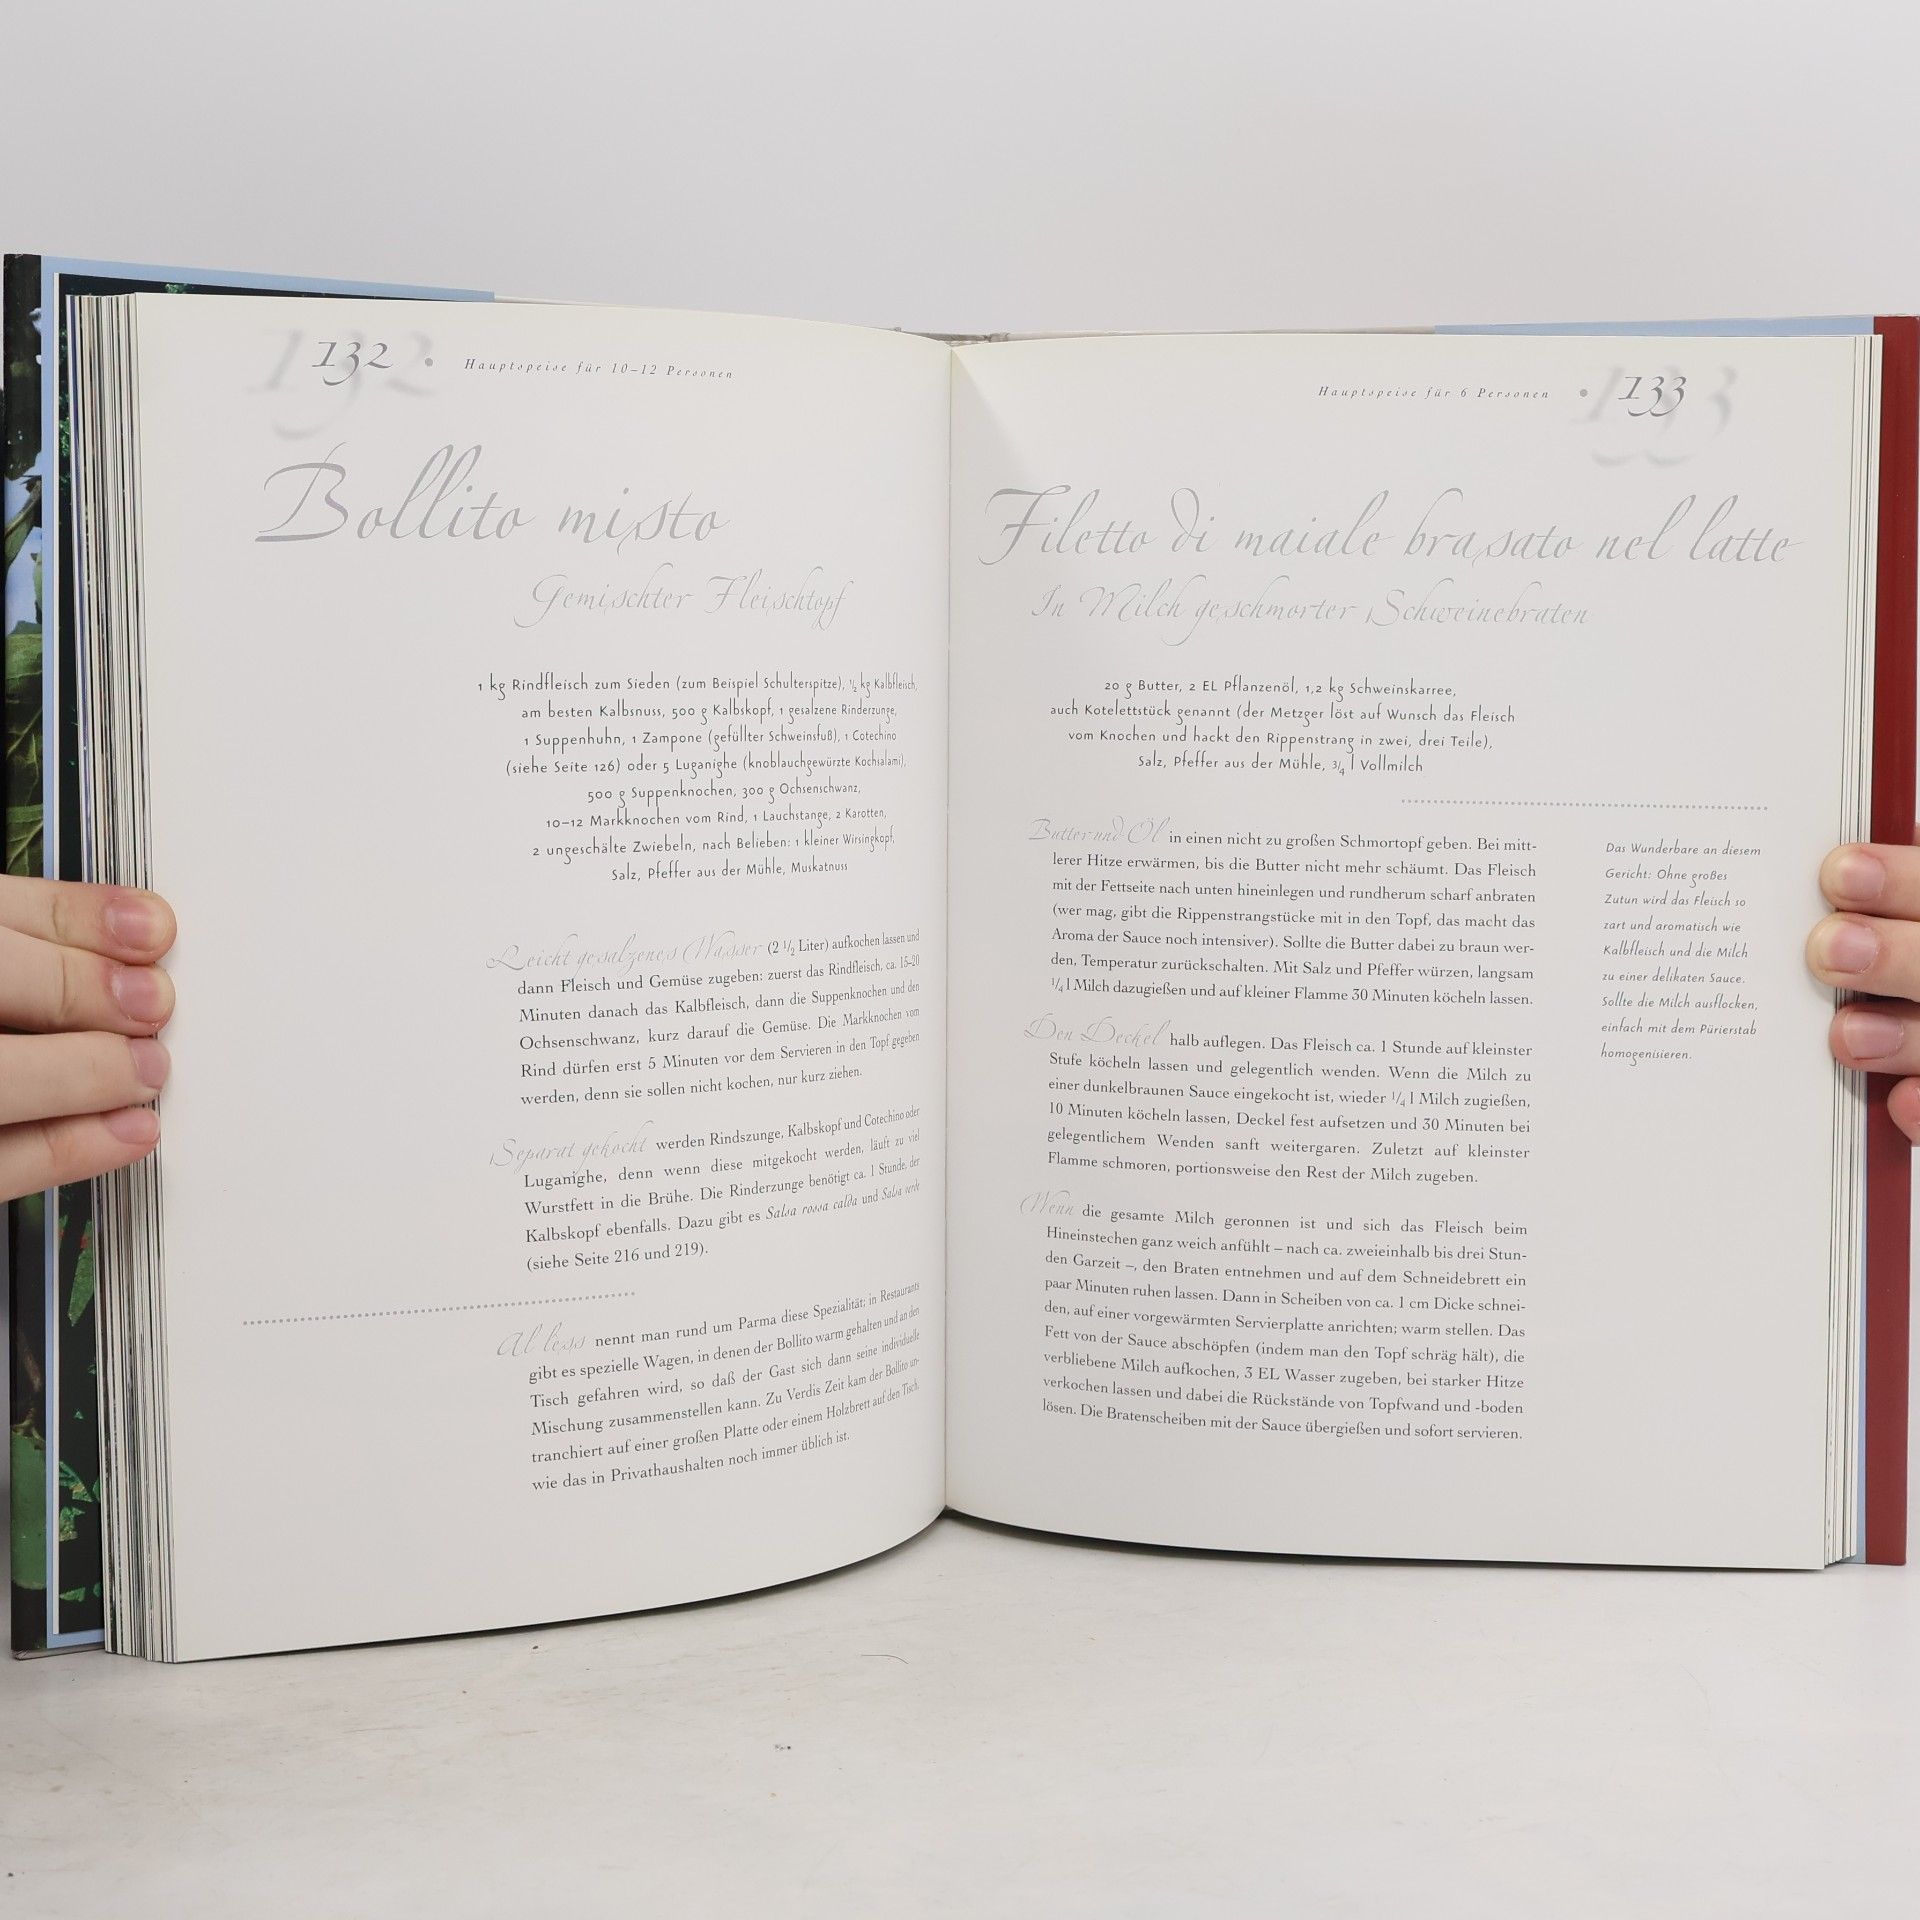 132 • Hauptspeise für 10–12 Personen
Bollito misto
Gemischter Fleischtopf
1 kg Rindfleisch zum Sieden (zum Beispiel Schulterspitze), ½ kg Kalbfleisch,
am besten Kalbsnuss, 500 g Kalbskopf, 1 gesalzene Rinderzunge,
1 Suppenhuhn, 1 Zampone (gefüllter Schweinsfuß), 1 Cotechino
(siehe Seite 126) oder 5 Luganighe (knoblauchgewürzte Kochsalami),
500 g Suppenknochen, 300 g Ochsenschwanz,
10–12 Markknochen vom Rind, 1 Lauchstange, 2 Karotten,
2 ungeschälte Zwiebeln, nach Belieben: 1 kleiner Wirsingkopf,
Salz, Pfeffer aus der Mühle, Muskatnuss
Leicht gesalzenes Wasser (2 ½ Liter) aufkochen lassen und
dann Fleisch und Gemüse zugeben: zuerst das Rindfleisch, ca. 15–20
Minuten danach das Kalbfleisch, dann die Suppenknochen und den
Ochsenschwanz, kurz darauf die Gemüse. Die Markknochen vom
Rind dürfen erst 5 Minuten vor dem Servieren in den Topf gegeben
werden, denn sie sollen nicht kochen, nur kurz ziehen.
Separat gekocht werden Rindszunge, Kalbskopf und Cotechino oder
Luganighe, denn wenn diese mitgekocht werden, läuft zu viel
Wurstfett in die Brühe. Die Rinderzunge benötigt ca. 1 Stunde, der
Kalbskopf ebenfalls. Dazu gibt es Salsa rossa calda und Salsa verde
(siehe Seite 216 und 219).
Al less nennt man rund um Parma diese Spezialität; in Restaurants
gibt es spezielle Wagen, in denen der Bollito warm gehalten und an den
Tisch gefahren wird, so daß der Gast sich dann seine individuelle
Mischung zusammenstellen kann. Zu Verdis Zeit kam der Bollito un-
tranchiert auf einer großen Platte oder einem Holzbrett auf den Tisch,
wie das in Privathaushalten noch immer üblich ist.
Hauptspeise für 6 Personen • 133
Filetto di maiale brasato nel latte
In Milch geschmorter Schweinebraten
20 g Butter, 2 EL Pflanzenöl, 1,2 kg Schweinskarree,
auch Kotelettstück genannt (der Metzger löst auf Wunsch das Fleisch
vom Knochen und hackt den Rippenstrang in zwei, drei Teile),
Salz, Pfeffer aus der Mühle, ¾ l Vollmilch
Butter und Öl in einen nicht zu großen Schmortopf geben. Bei mitt-
lerer Hitze erwärmen, bis die Butter nicht mehr schäumt. Das Fleisch
mit der Fettseite nach unten hineinlegen und rundherum scharf anbraten
(wer mag, gibt die Rippenstrangstücke mit in den Topf, das macht das
Aroma der Sauce noch intensiver). Sollte die Butter dabei zu braun wer-
den, Temperatur zurückschalten. Mit Salz und Pfeffer würzen, langsam
¼ l Milch dazugießen und auf kleiner Flamme 30 Minuten köcheln lassen.
Den Deckel halb auflegen. Das Fleisch ca. 1 Stunde auf kleinster
Stufe köcheln lassen und gelegentlich wenden. Wenn die Milch zu
einer dunkelbraunen Sauce eingekocht ist, wieder ¼ l Milch zugießen,
10 Minuten köcheln lassen, Deckel fest aufsetzen und 30 Minuten bei
gelegentlichem Wenden sanft weitergaren. Zuletzt auf kleinster
Flamme schmoren, portionsweise den Rest der Milch zugeben.
Wenn die gesamte Milch geronnen ist und sich das Fleisch beim
Hineinstechen ganz weich anfühlt – nach ca. zweieinhalb bis drei Stun-
den Garzeit –, den Braten entnehmen und auf dem Schneidebrett ein
paar Minuten ruhen lassen. Dann in Scheiben von ca. 1 cm Dicke schnei-
den, auf einer vorgewärmten Servierplatte anrichten; warm stellen. Das
Fett von der Sauce abschöpfen (indem man den Topf schräg hält), die
verbliebene Milch aufkochen, 3 EL Wasser zugeben, bei starker Hitze
verkochen lassen und dabei die Rückstände von Topfwand und -boden
lösen. Die Bratenscheiben mit der Sauce übergießen und sofort servieren.
Das Wunderbare an diesem
Gericht: Ohne großes
Zutun wird das Fleisch so
zart und aromatisch wie
Kalbfleisch und die Milch
zu einer delikaten Sauce.
Sollte die Milch ausflocken,
einfach mit dem Pürierstab
homogenisieren.